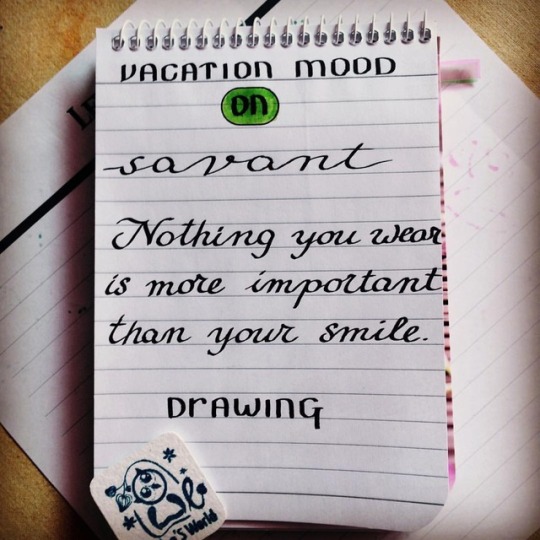 VACATION MOOD
ON
savant
Nothing you wear
is more important
than your smile.
DrAWING
's World